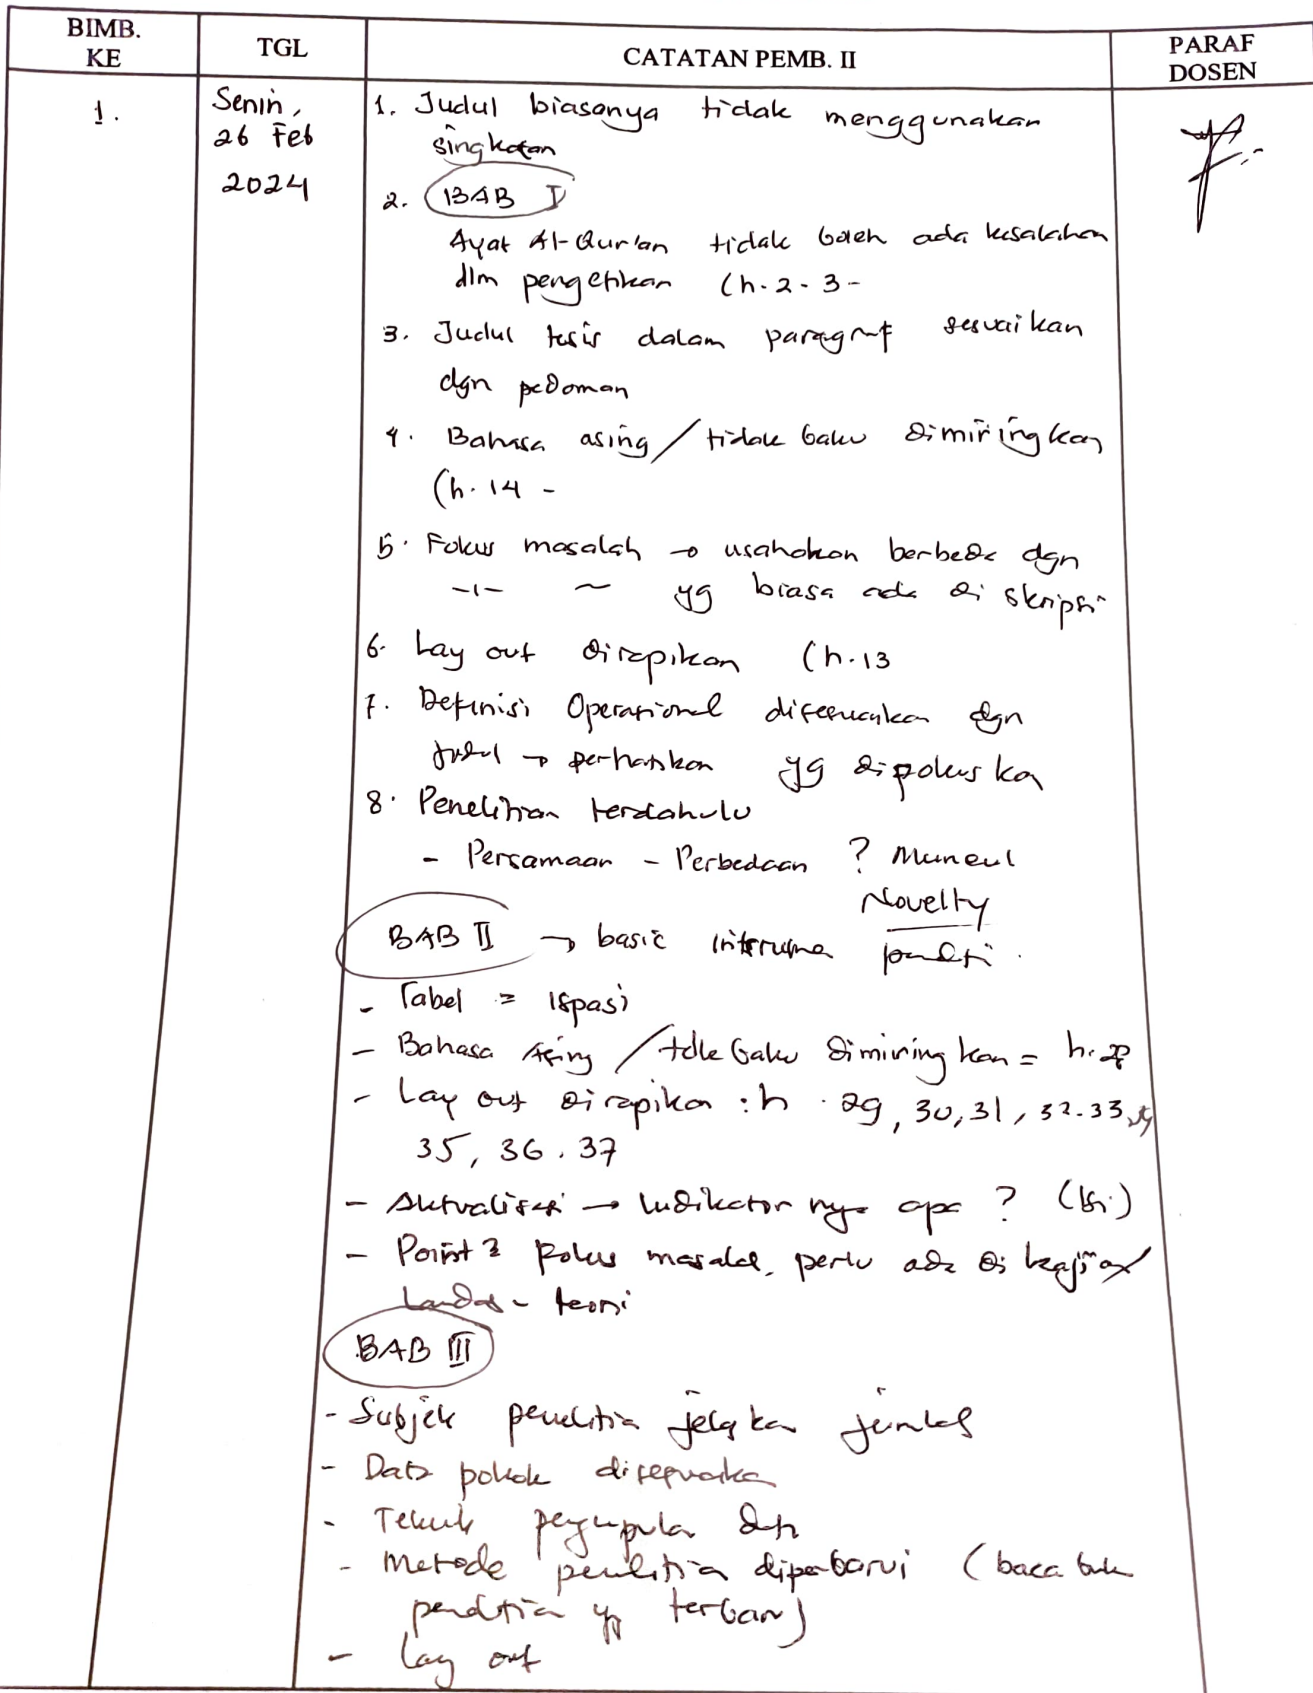 BIMB. KE
TGL
CATATAN PEMB. II
PARAF DOSEN
1.
Senin,
26 Feb
2024
1. Judul biasanya tidak menggunakan
singkatan
2. BAB I
Ayat Al-Qur'an tidak boleh ada kesalahan
dlm pengetikan (h. 2. 3 -
3. Judul tesis dalam paragraf sesuaikan
dgn pedoman
4. Bahasa asing / tidak baku dimiringkan
(h. 14 -
5. Fokus masalah → usahakan berbeda dgn
-1- ~ yg biasa ada di skripsi
6. Lay out dirapikan (h. 13
7. Definisi Operasional disesuaikan dgn
judul → perhatikan yg dipokuskan
8. Penelitian terdahulu
- Persamaan - Perbedaan ? Muncul
Novelty
BAB II → basic
- Tabel = 1 spasi
- Bahasa Asing / tdk baku dimiringkan = h.
- Lay out dirapikan : h. 29, 30, 31, 32. 33, 34
35, 36. 37
- Aktualisasi → Indikator nya apa ?
- Point 3 Fokus masalah, perlu ada di kajian
Landasan teori
BAB III
- Subjek penelitian jelaskan jumlah
- Data pokok disesuaikan
- Teknik pengumpulan data
- Metode penelitian diperbarui (baca buku
penelitian yg terbaru)
- Lay out